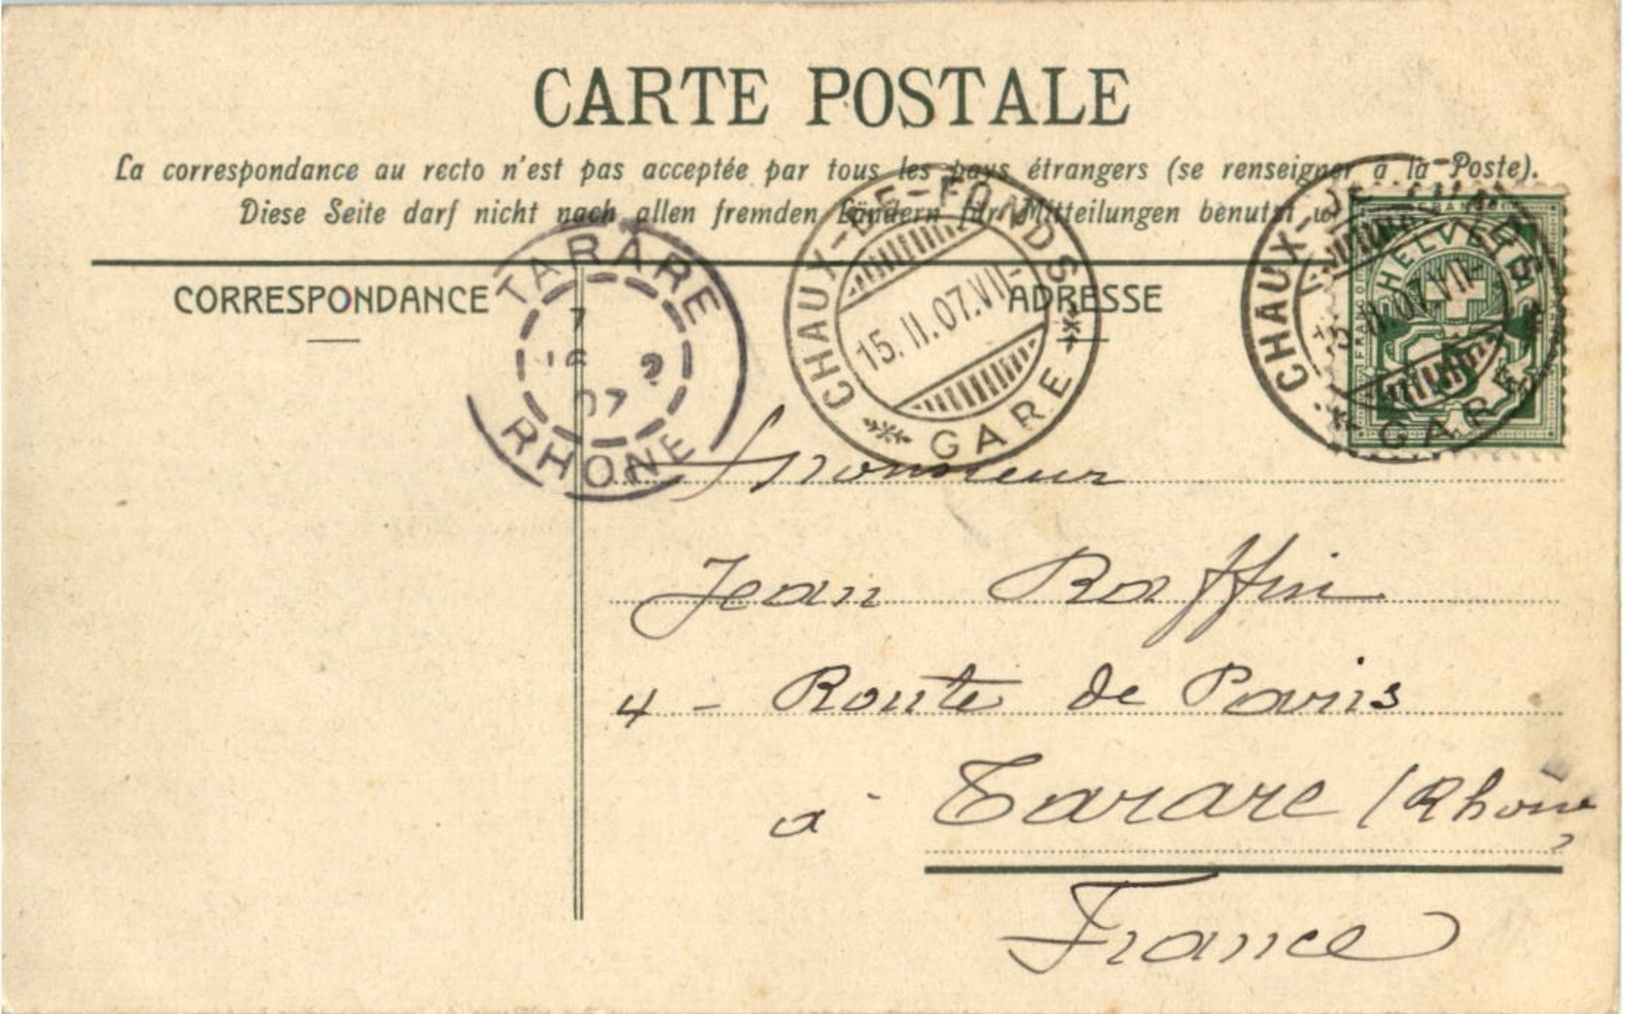 CARTE POSTALE
La correspondance au recto n'est pas acceptée par tous les pays étrangers (se renseigner à la Poste).
Diese Seite darf nicht nach allen fremden Ländern für Mitteilungen benutzt
CORRESPONDANCE
ADRESSE
TARARE
16 2
07
RHONE
CHAUX-DE-FONDS
15.II.07.VII-
GARE
CHAUX-DE-FONDS
15.II.07.VII-
GARE
HELVETIA
Monsieur
Jean Raffin
4 - Route de Paris
à Tarare (Rhône)
France